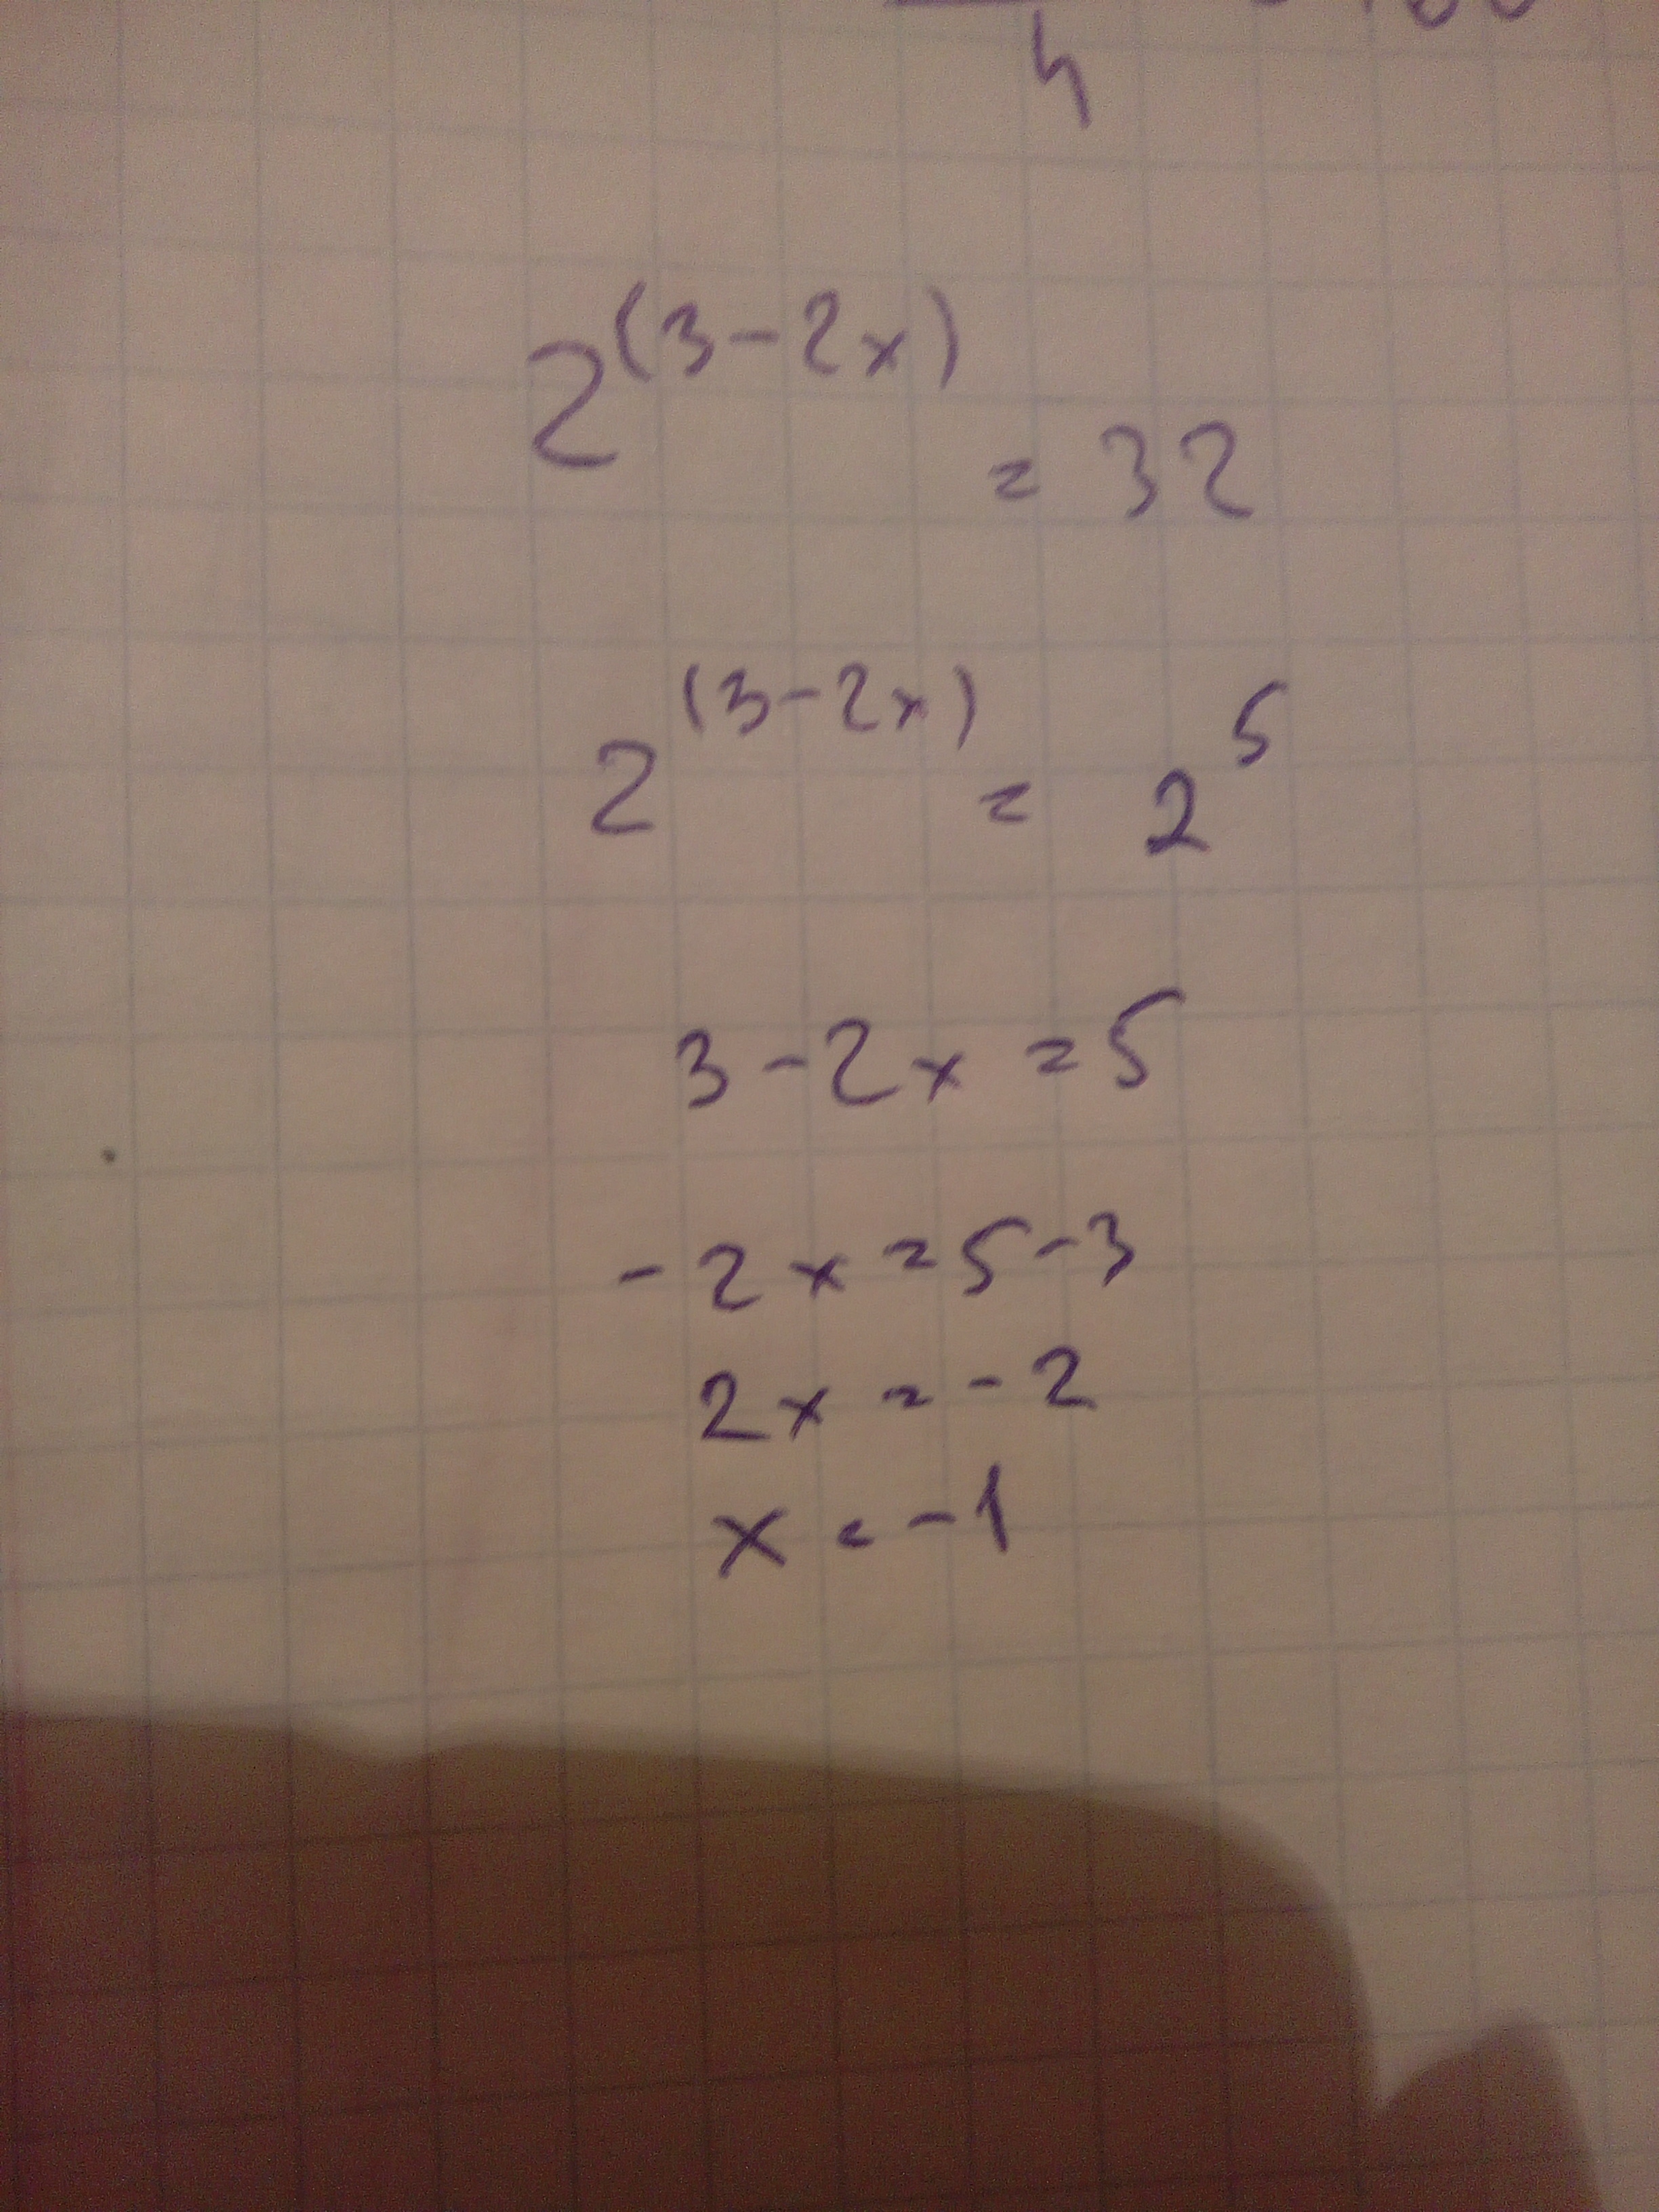 4
2^(3-2x) = 32
2^(3-2x) = 2^5
3-2x=5
-2x=5-3
2x=-2
x=-1